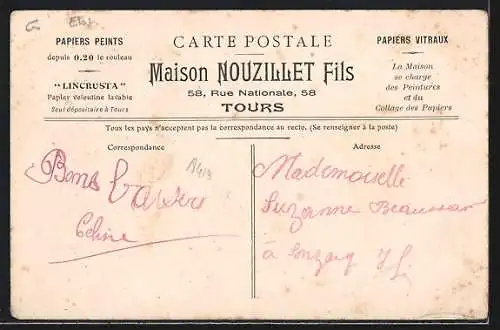 PAPIERS PEINTS
depuis 0.20 le rouleau
"LINCRUSTA"
Papier veloutine lavable
Seul dépositaire à Tours
CARTE POSTALE
Maison NOUZILLET Fils
58, Rue Nationale, 58
TOURS
PAPIERS VITRAUX
La Maison
se charge
des Peintures
et du
Collage des Papiers
Tous les pays n'acceptent pas la correspondance au recto. (Se renseigner à la poste)
Correspondance
Bons Baisers
Celine
Adresse
Mademoiselle
Suzanne
à